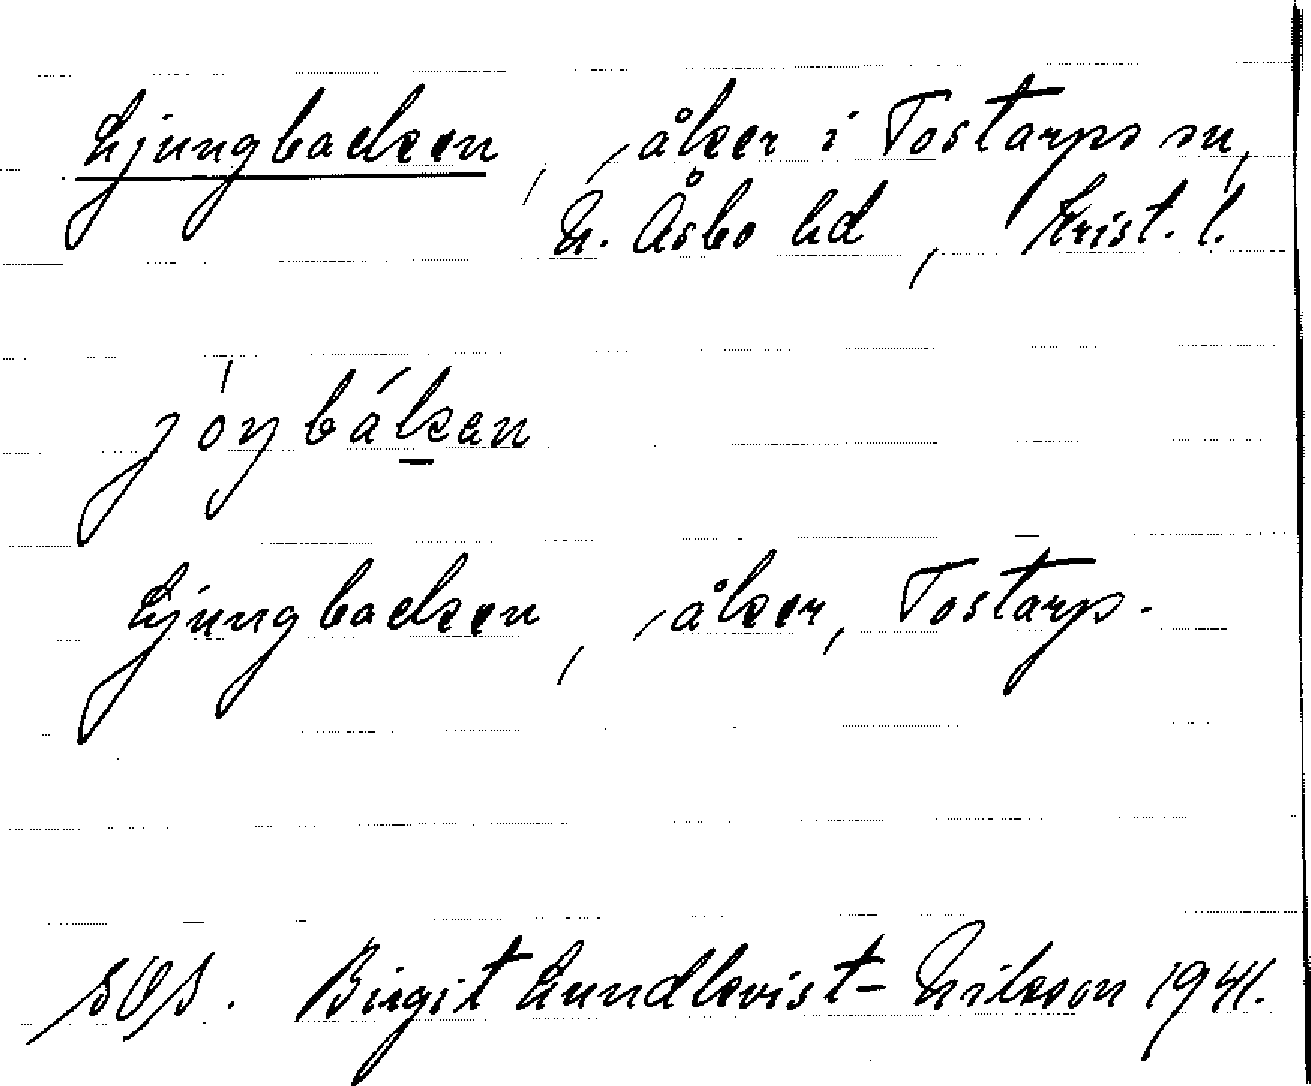 Ljungbacken, åker i Tostarps sn,
N. Åsbo hd, Krist. l.
jóŋbák̲an
Ljungbacken, åker, Tostarp.
Birgit Lundkvist-Nilsson 1941.